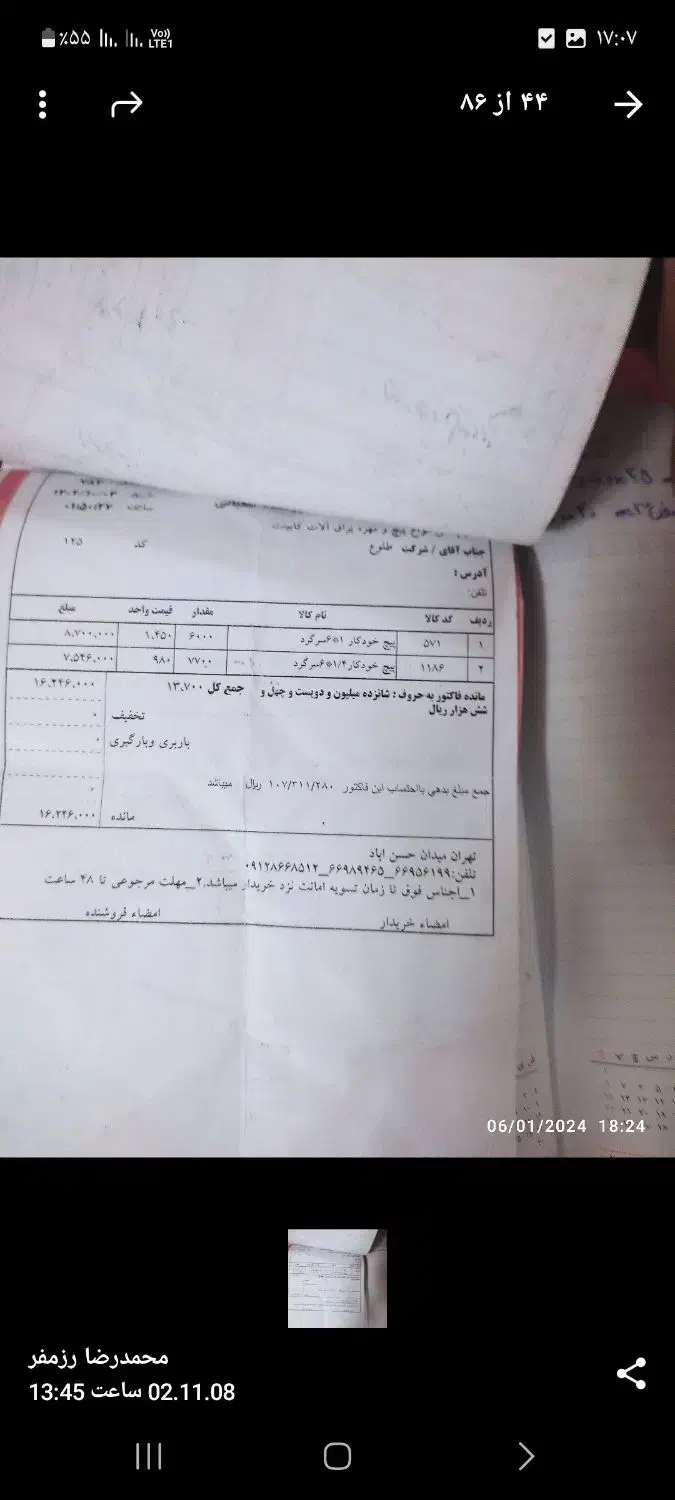 ۱۷:۰۷
٪۵۵
Vo))
LTE1
۴۴ از ۸۶
ساعت
انواع پیچ و مهره یراق آلات کابینت
جناب آقای / شرکت طلوع
کد ۱۲۵
آدرس :
تلفن:
ردیف کد کالا نام کالا مقدار قیمت واحد مبلغ
۱ ۵۷۱ پیچ خودکار ۱*۶سرگرد ۶۰۰۰ ۱.۴۵۰ ۸.۷۰۰.۰۰۰
۲ ۱۱۸۶ پیچ خودکار۱/۴*۶سرگرد ۷۷۰۰ ۹۸۰ ۷.۵۴۶.۰۰۰
مانده فاکتور به حروف : شانزده میلیون و دویست و چهل و جمع کل ۱۳.۷۰۰ ۱۶.۲۴۶.۰۰۰
شش هزار ریال
تخفیف ۰
باربری وبارگیری ۰
جمع مبلغ بدهی بااحتساب این فاکتور ۱۰۷/۳۱۱/۲۸۰ ریال میباشد
۰
مانده ۱۶.۲۴۶.۰۰۰
تهران میدان حسن اباد
تلفن:۶۶۹۵۶۱۹۹_۶۶۹۸۹۴۶۵_۰۹۱۲۸۶۶۸۵۱۲
۱_اجناس فوق تا زمان تسویه امانت نزد خریدار میباشد.۲_مهلت مرجوعی تا ۴۸ ساعت
امضاء خریدار امضاء فروشنده
06/01/2024 18:24
محمدرضا رزمفر
02.11.08 ساعت 13:45